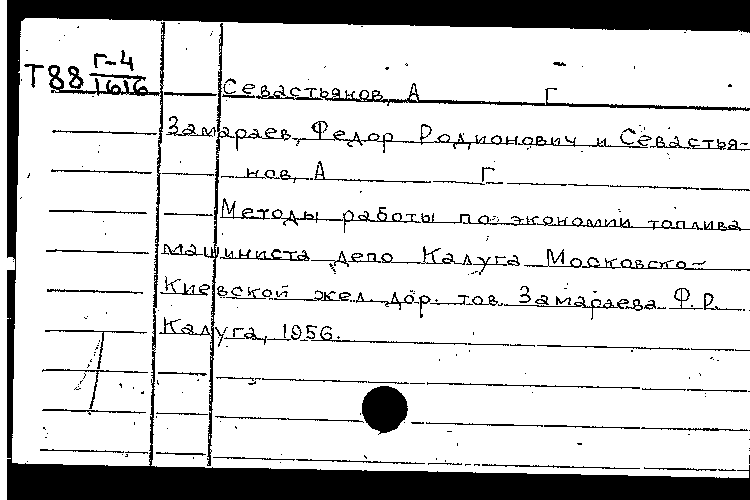 Т88 Г-4
1616
Севастьянов, А Г
Замараев, Федор Родионович и Севастья-
нов, А Г
Методы работы по экономии топлива
машиниста депо Калуга Московско-
Киевской жел. дор. тов. Замараева Ф.Р.
Калуга, 1956.